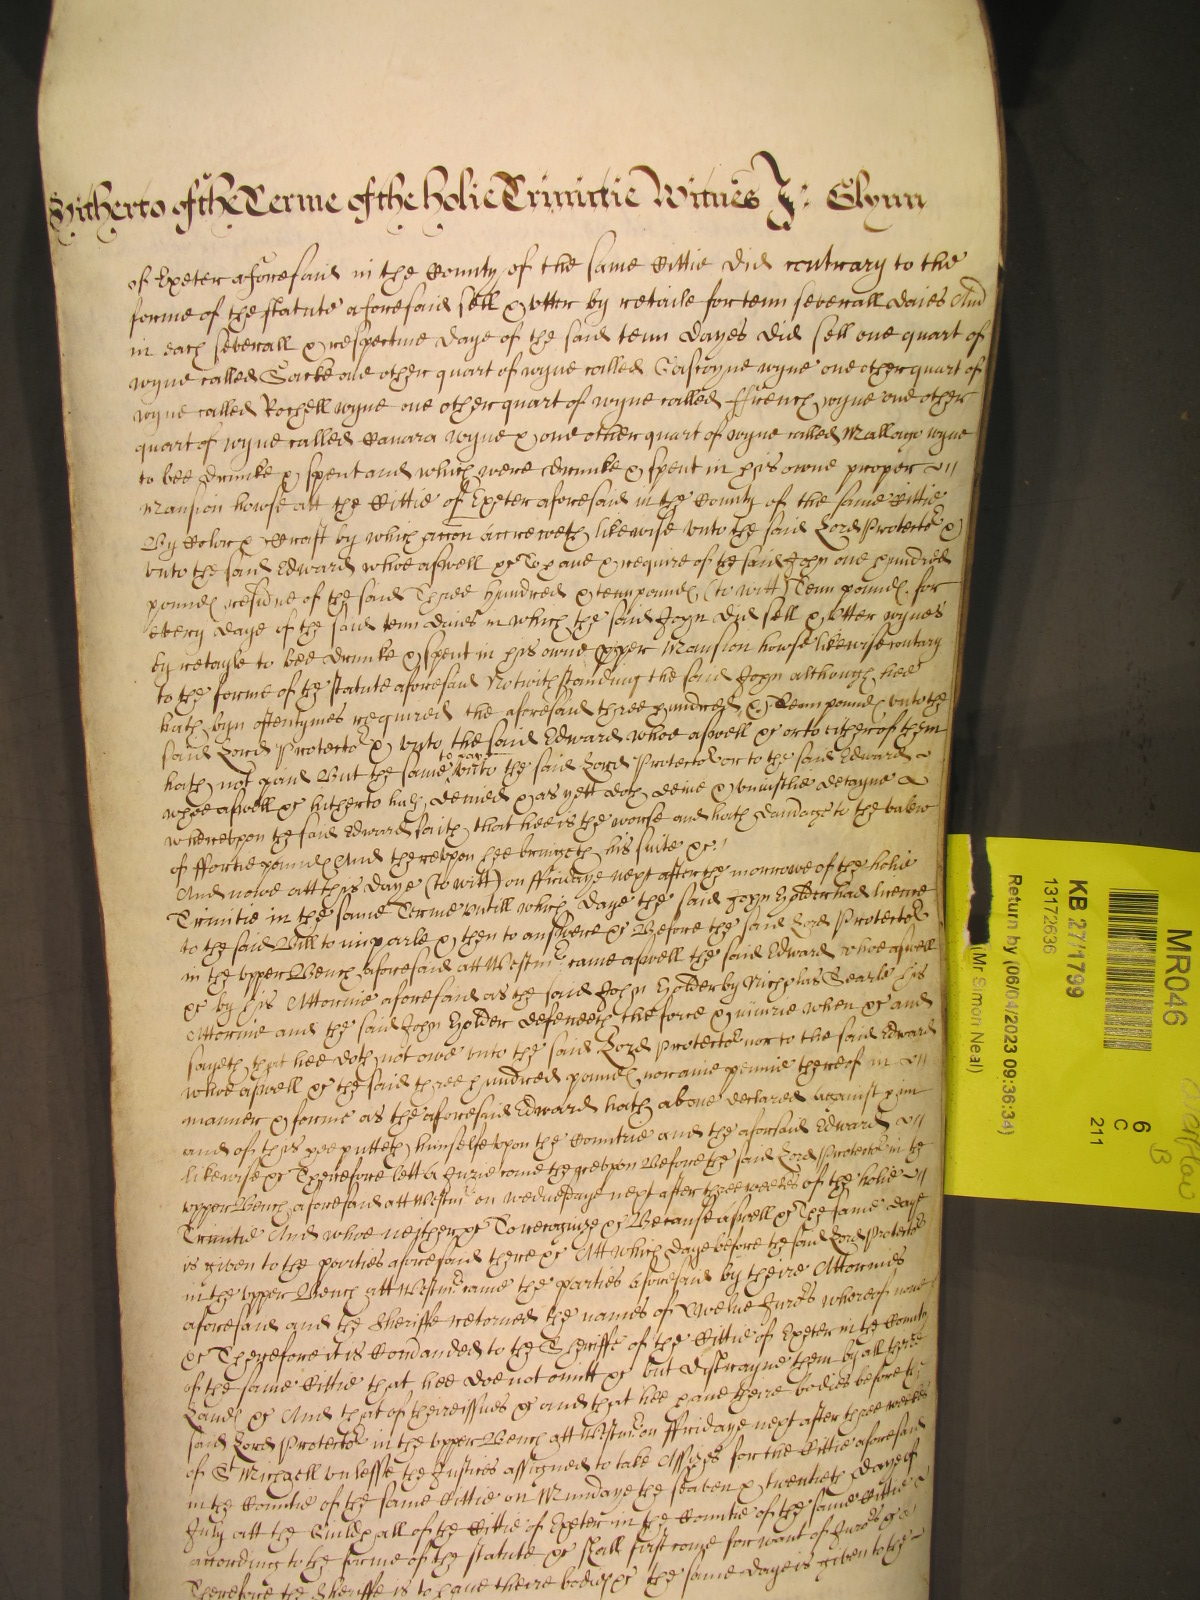 Hitherto of the Terme of the holie Trinitie Witnes J: Glynn
of Exeter aforesaid in the County of the same Cittie did contrary to the
forme of the statute aforesaid sell & utter by retaile for tenn severall daies And
in each severall & respective daye of the said tenn dayes did sell one quart of
wyne called Sacke one other quart of wyne called Gascoyne wyne one other quart of
wyne called Rochell wyne one other quart of wyne called ffrench wyne one other
quart of wyne called Canara wyne & one other quart of wyne called Mallago wyne
to bee drunke & spent and which were drunke & spent in his owne proper
Mansion howse att the Cittie of Exeter aforesaid in the County of the same Cittie
By Color & which accon accreweth likewise vnto the said Lord Protector &
vnto the said Edward whoe aswell &c To haue & require of the said John one hundred
pounds residue of the said Three hundred & tenn pounds (to witt) Tenn pounds for
every daye of the said tenn daies in which the said John did sell & utter wynes
by retayle to bee drunke & spent in his owne pper Mansion howse likewise contary
to the forme of the statute aforesaid Notwithstanding the said John although hee
hath byn oftentymes required the aforesaid three hundred & Tenn pounds vnto the
said Lord Protector & vnto the said Edward whoe aswell &c or to either of them
hath not paid But the same to pay vnto the said Lord Protector or to the said Edward
whoe aswell &c hitherto hath denied & as yett doth denie & vniustlie detayne
wherevpon the said Edward saith that hee is the worse and hath damage to the valew
of ffortie pounds And therevpon hee bringeth his suite &c
And nowe att this daye (to witt) on ffridaye next after the morrowe of the holie
Trinitie in the same Terme vntill which daye the said John Holder had licence
to the said Bill to imparle & then to answere &c Before the said Lord Protector
in the vpper Bench aforesaid att Westmr came aswell the said Edward whoe aswell
&c by his Attornie aforesaid as the said John Holder by Nicholas Searle his
Attornie and the said John Holder defendeth the force & iniurie when &c and
sayeth that hee doth not owe vnto the said Lord Protector nor to the said Edward
whoe aswell &c the said three hundred pounds nor anie pennie thereof in
manner & forme as the aforesaid Edward hath above declared against him
and of this hee putteth himselfe vpon the Countrie and the aforsaid Edward
likewise &c Therefore lett a Jurie come therevpon Before the said Lord Protector in the
vpper Bench aforesaid att Westmr on wednesdaye next after three weekes of the holie
Trinitie And whoe neither &c To recognize &c Because aswell &c The same daye
is given to the parties aforesaid there &c Att which daye before the said Lord Protector
in the vpper Bench att Westmr came the parties aforesaid by theire Attornies
aforesaid and the Sheriffe retorned the names of Twelue Jurors whereof none
&c Therefore it is Comanded to the Sheriffe of the Cittie of Exeter in the County
of the same Cittie that hee doe not omitt &c but distrayne them by all theire
Lands &c And that of theire issues &c and that hee haue theire bodies before the
said Lord Protector in the vpper Bench att Westmr on ffridaye next after three weekes
of St Michaell vnlesse the Justices assigned to take Assizes for the Cittie aforesaid
in the Countie of the same Cittie on Mundaye the seaven & twentieth daye of
July att the Guildhall of the Cittie of Exeter in the Countie of the same Cittie
according to the forme of the statute &c shall first come for want of Jurors &c
Therefore the Sheriffe is to haue theire bodies &c the same daye is given to the
MR046
6
C
211
KB 27/1799
13172636
Return by (06/04/2023 09:36:34)
(Mr Simon Neal)
B